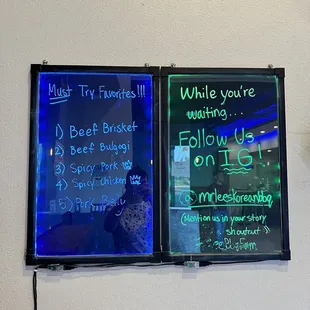 Must Try Favorites!!!
1) Beef Brisket
2) Beef Bulgogi
3) Spicy Pork
4) Spicy Chicken
5) Pork Belly
While you're
waiting...
Follow Us
on I.G!
@mrleeskoreanbbq
(Mention us in your story
shoutout